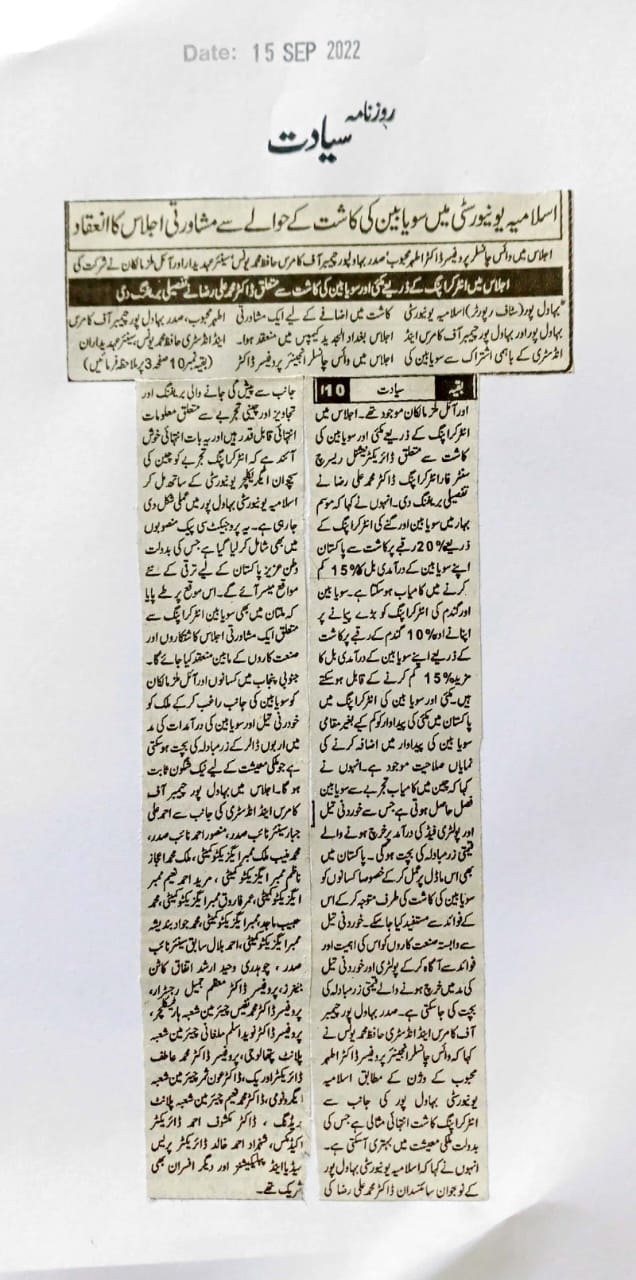 Date: 15 SEP 2022
روزنامہ سیادت
اسلامیہ یونیورسٹی میں سویابین کی کاشت کے حوالے سے مشاورتی اجلاس کا انعقاد
اجلاس میں وائس چانسلر پروفیسر ڈاکٹر اطہر محبوب، صدر بہاولپور چیمبر آف کامرس حافظ محمد یونس، سینئر عہدیدار اور آئل ملز مالکان نے شرکت کی
اجلاس میں انٹرکراپنگ کے ذریعے مکئی اور سویابین کی کاشت سے متعلق ڈاکٹر محمد علی رضا نے تفصیلی بریفنگ دی
بہاول پور (سٹاف رپورٹر) اسلامیہ یونیورسٹی
بہاول پور اور بہاول پور چیمبر آف کامرس اینڈ
انڈسٹری کے باہمی اشتراک سے سویابین کی
کاشت میں اضافے کے لیے ایک مشاورتی
اجلاس بغداد الجدید کیمپس میں منعقد ہوا۔
اجلاس میں وائس چانسلر انجینئر پروفیسر ڈاکٹر
اطہر محبوب، صدر بہاول پور چیمبر آف کامرس
اینڈ انڈسٹری حافظ محمد یونس، سینئر عہدیداران
(بقیہ نمبر 10 صفحہ 3 پر ملاحظہ فرمائیں)
بقیہ سیادت 10
اور آئل ملز مالکان موجود تھے۔ اجلاس میں
انٹرکراپنگ کے ذریعے مکئی اور سویابین کی
کاشت سے متعلق ڈائریکٹر نیشنل ریسرچ
سنٹر فار انٹرکراپنگ ڈاکٹر محمد علی رضا نے
تفصیلی بریفنگ دی۔ انہوں نے کہا کہ موسم
بہار میں سویابین اور گنے کی انٹرکراپنگ کے
ذریعے 20% رقبے پر کاشت سے پاکستان
اپنے سویابین کے درآمدی بل کا 15% کم
کرنے میں کامیاب ہو سکتا ہے۔ سویابین
اور گندم کی انٹرکراپنگ کو بڑے پیمانے پر
اپنانے اور 10% گندم کے رقبے پر کاشت
کے ذریعے اپنے سویابین کے درآمدی بل کا
مزید 15% کم کرنے کے قابل ہو سکتے
ہیں۔ مکئی اور سویابین کی انٹرکراپنگ میں
پاکستان میں مکئی کی پیداوار کو کم کیے بغیر مقامی
سویابین کی پیداوار میں اضافہ کرنے کی
نمایاں صلاحیت موجود ہے۔ انہوں نے
کہا کہ چین میں کامیاب تجربے سے سویابین
فصل حاصل ہوتی ہے جس سے خوردنی تیل
اور پولٹری فیڈ کی درآمد پر خرچ ہونے والے
قیمتی زرمبادلہ کی بچت ہوگی۔ پاکستان میں
بھی اس ماڈل پر عمل کر کے خصوصا کسانوں کو
سویابین کی کاشت کی طرف متوجہ کر کے اس
کے فوائد سے مستفید کیا جا سکے۔ خوردنی تیل
سے وابستہ صنعت کاروں کو اس کی اہمیت اور
فوائد سے آگاہ کر کے پولٹری اور خوردنی تیل
کی مد میں خرچ ہونے والے قیمتی زرمبادلہ کی
بچت کی جا سکتی ہے۔ صدر بہاول پور چیمبر
آف کامرس اینڈ انڈسٹری حافظ محمد یونس نے
کہا کہ وائس چانسلر انجینئر پروفیسر ڈاکٹر اطہر
محبوب کے وژن کے مطابق اسلامیہ
یونیورسٹی بہاول پور کی جانب سے
انٹرکراپنگ کاشت انتہائی مثالی ہے جس کی
بدولت ملکی معیشت میں بہتری آسکتی ہے۔
انہوں نے کہا کہ اسلامیہ یونیورسٹی بہاول پور
کے نوجوان سائنسدان ڈاکٹر محمد علی رضا کی
جانب سے پیش کی جانے والی بریفنگ اور
تجاویز اور چینی تجربے سے متعلق معلومات
انتہائی قابل قدر ہیں اور یہ بات انتہائی خوش
آئند ہے کہ انٹرکراپنگ تجربے کو چین کی
سچوان ایگریکلچر یونیورسٹی کے ساتھ مل کر
اسلامیہ یونیورسٹی بہاول پور میں عملی شکل دی
جارہی ہے۔ یہ پروجیکٹ سی پیک منصوبوں
میں بھی شامل کر لیا گیا ہے جس کی بدولت
وطن عزیز پاکستان کے لیے ترقی کے نئے
مواقع میسر آئے گے۔ اس موقع پر طے پایا
کہ ملتان میں بھی سویابین انٹرکراپنگ سے
متعلق ایک مشاورتی اجلاس کاشتکاروں اور
صنعت کاروں کے مابین منعقد کیا جائے گا۔
جنوبی پنجاب میں کسانوں اور آئل ملز مالکان
کو سویابین کی جانب راغب کر کے ملک کو
خودرنی تیل اور سویابین کی درآمدات کی مد
میں اربوں ڈالر کے زرمبادلہ کی بچت ہوسکتی
ہے جو ملکی معیشت کے لیے نیک شگون ثابت
ہوگا۔ اجلاس میں بہاول پور چیمبر آف
کامرس اینڈ انڈسٹری کی جانب سے احمد علی
جبار سینئر نائب صدر، منصور احمد نائب صدر،
محمد منیب ملک ممبر ایگزیکٹو کمیٹی، ملک محمد اعجاز
ناظم ممبر ایگزیکٹو کمیٹی، مرید احمد نعیم ممبر
ایگزیکٹو کمیٹی، عمر فاروق ممبر ایگزیکٹو کمیٹی، محمد
حبیب ماجد ممبر ایگزیکٹو کمیٹی، محمد جواد بندیشہ
ممبر ایگزیکٹو کمیٹی، احمد بلال سابق سینئر نائب
صدر، چوہدری وحید ارشد اتفاق کاٹن
جنرز، پروفیسر ڈاکٹر معظم جمیل رجسٹرار،
پروفیسر ڈاکٹر محمد نفیس چیئرمین شعبہ ہارٹیکلچر،
پروفیسر ڈاکٹر نوید اسلم ملغانی چیئرمین شعبہ
پلانٹ پتھالوجی، پروفیسر ڈاکٹر محمد عاطف
ڈائریکٹر اورک، ڈاکٹر عون ثمر چیئرمین شعبہ
ایگرونومی، ڈاکٹر محمد نعیم چیئرمین شعبہ پلانٹ
بریڈنگ، ڈاکٹر مکشوف احمد ڈائریکٹر
اکیڈمکس، شہزاد احمد خالد ڈائریکٹر پریس
میڈیا اینڈ پبلیکیشنز اور دیگر افسران بھی
شریک تھے۔